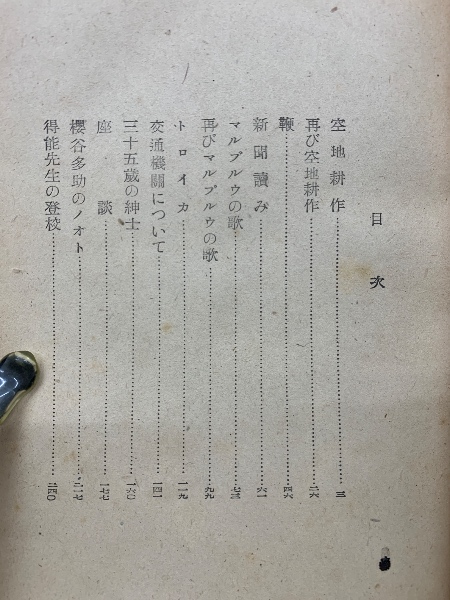 目次
空地耕作……三
再び空地耕作……二六
鞭……四六
新聞読み……六一
マルブルウの歌……七三
再びマルブルウの歌……九九
トロイカ……一一九
交通機關について……一四一
三十五歲の紳士……一六〇
座談……一七七
櫻谷多助のノオト……二一七
得能先生の登校……二四〇